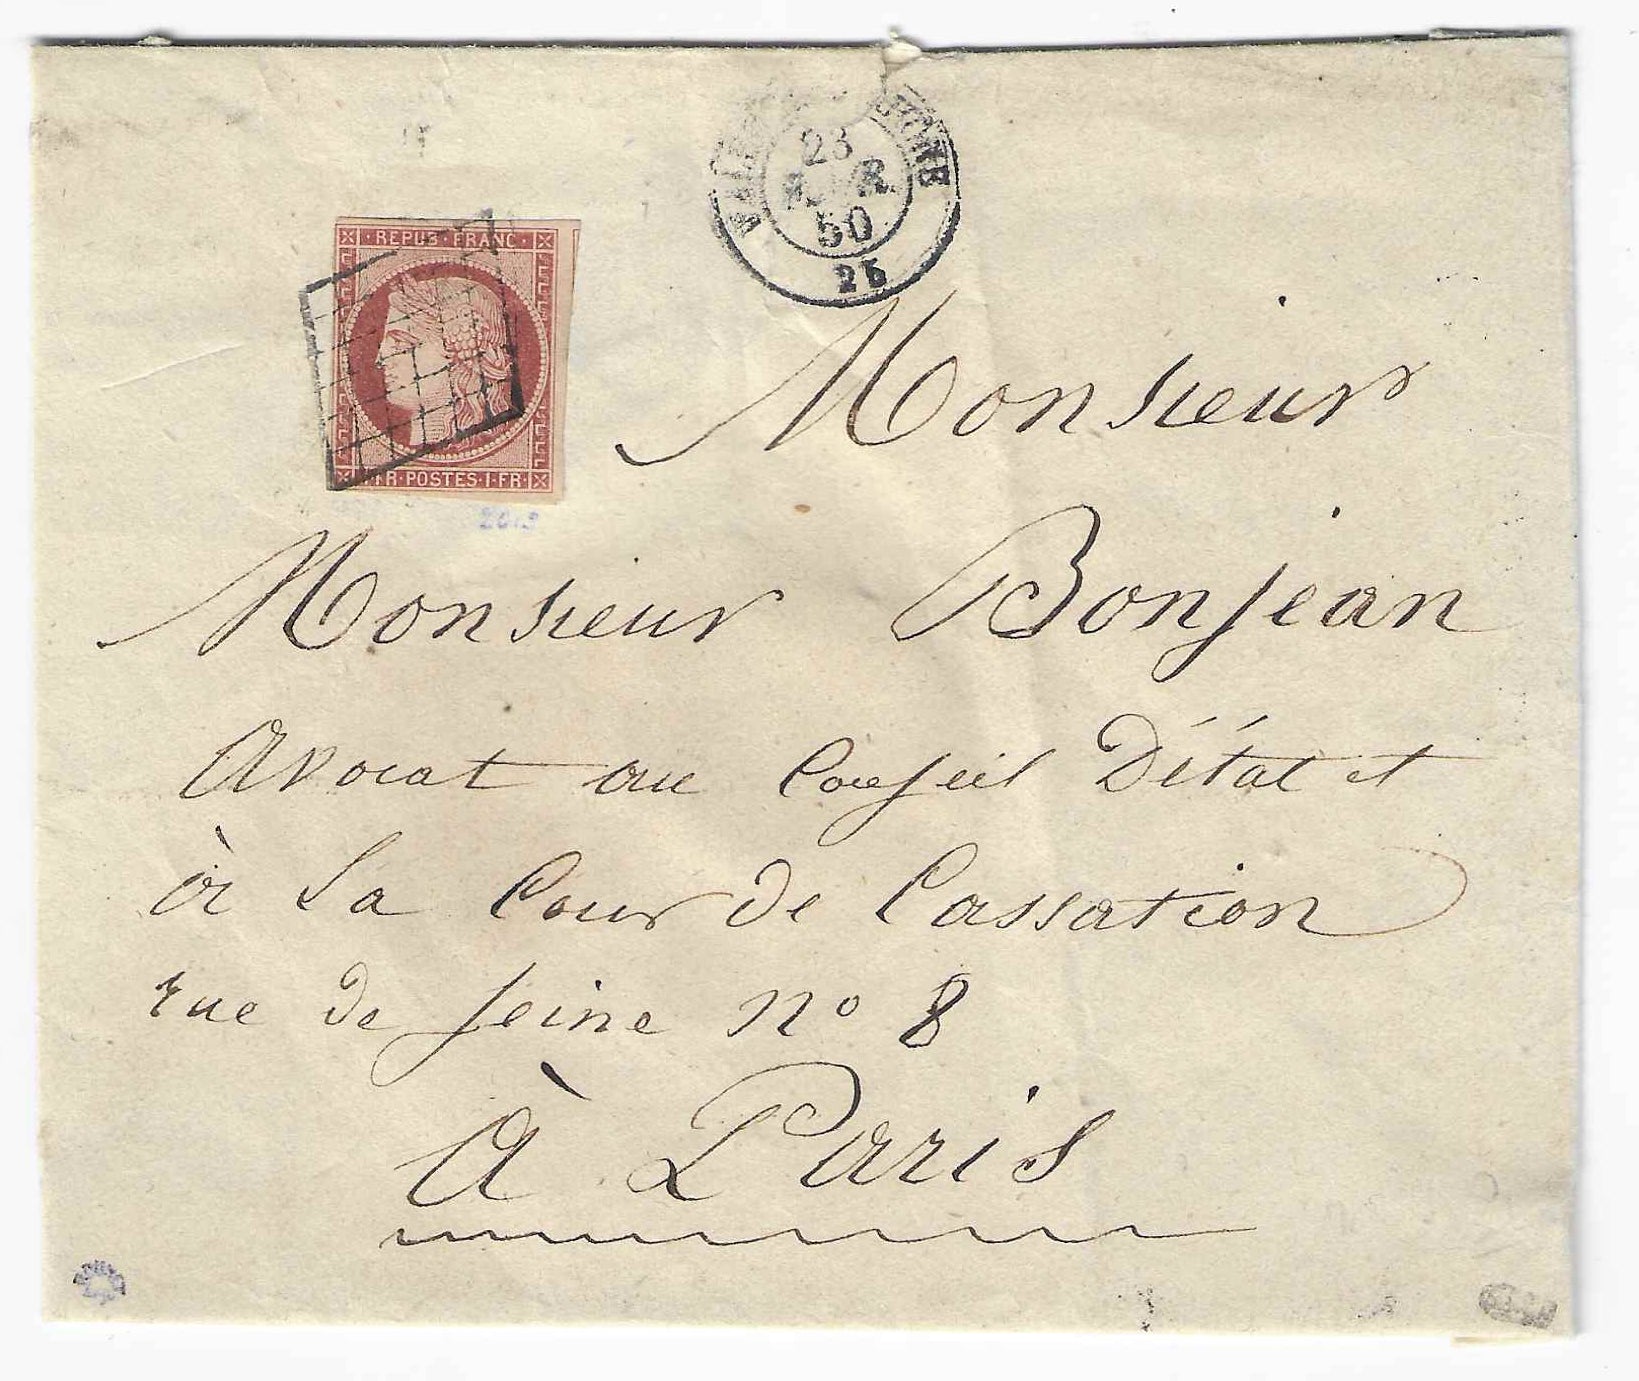 23
50
25
REPUB·FRANC·
POSTES·1·FR·
Monsieur
Monsieur Bonjean
Avocat au Conseil D'État et
à la Cour de Cassation
rue de Seine no 8
à Paris